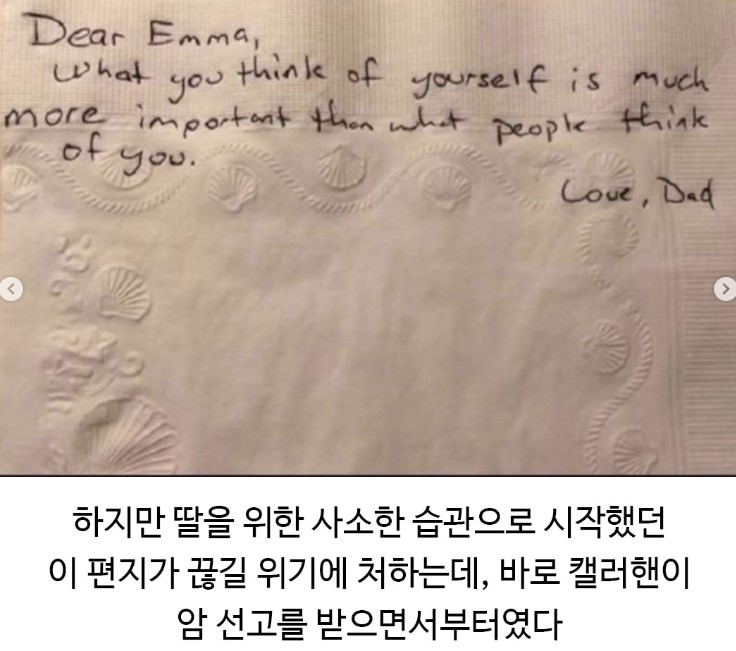 Dear Emma,
What you think of yourself is much
more important than what people think
of you.
Love, Dad
하지만 딸을 위한 사소한 습관으로 시작했던
이 편지가 끊길 위기에 처하는데, 바로 캘러핸이
암 선고를 받으면서부터였다